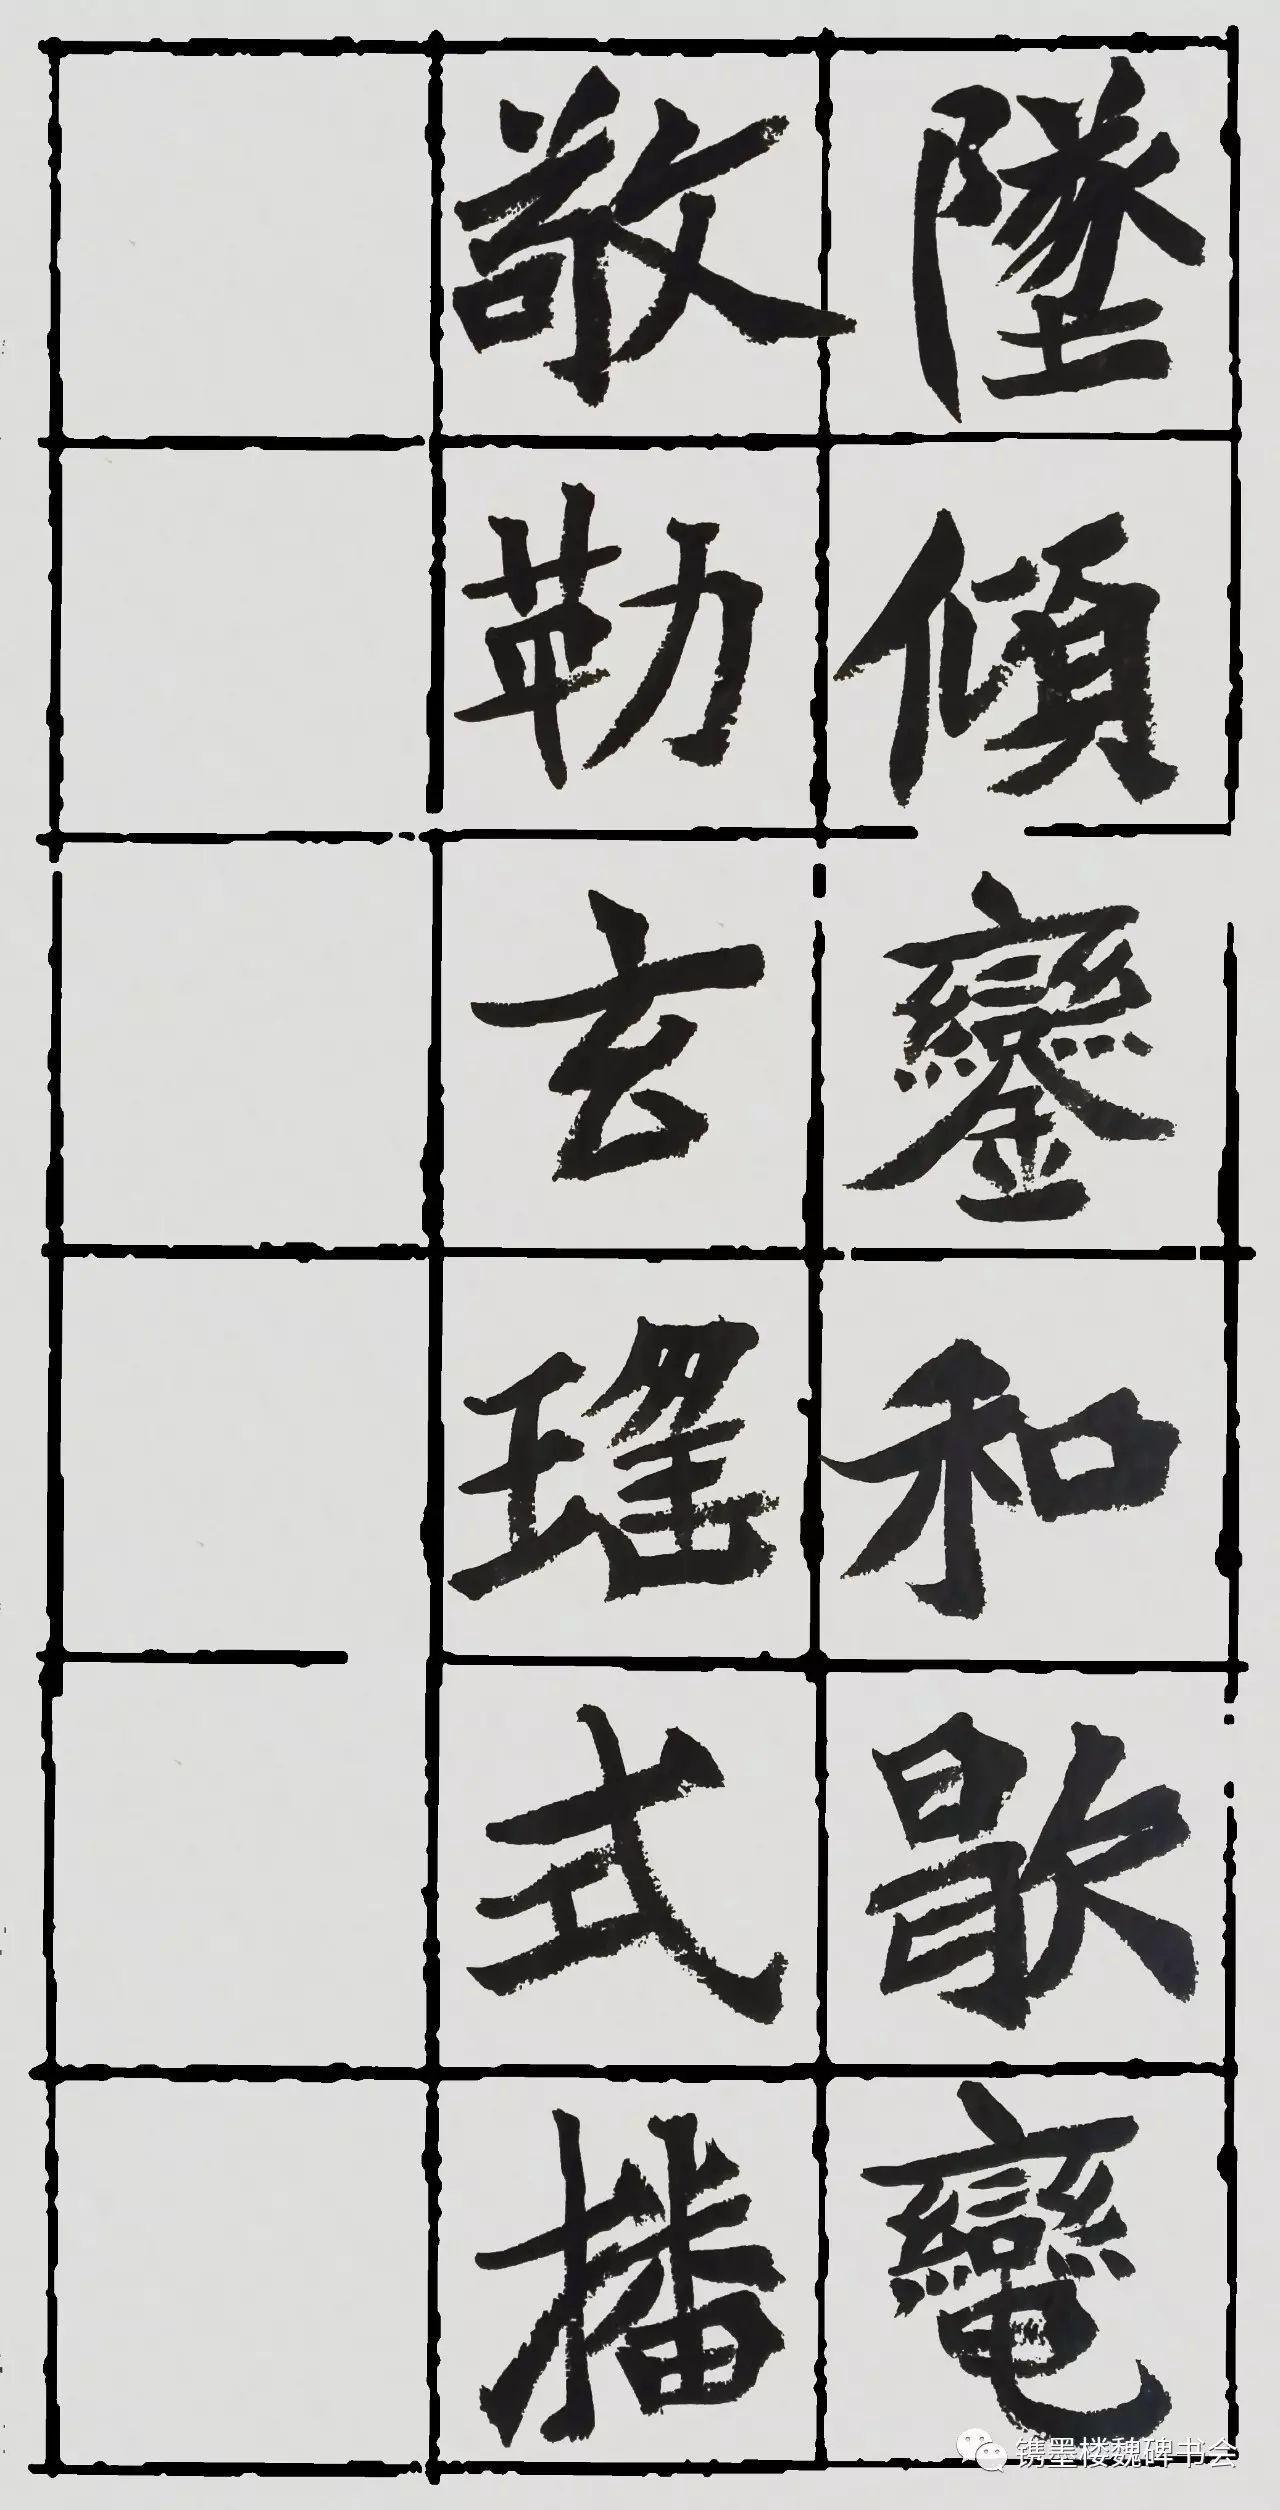 墜傾鑾和歇
敬勒玄瑤式播
镌墨楼魏碑书会